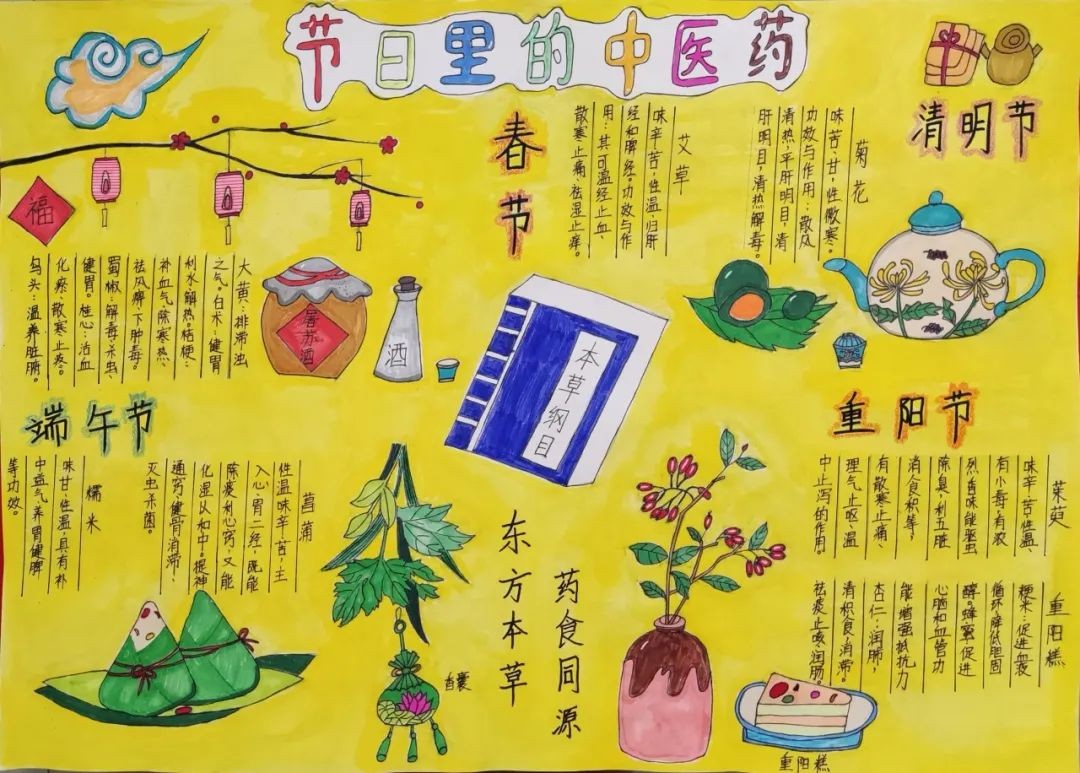 节日里的中医药
春节
福
大黄:排滞浊
之气。白术:健胃
利水解热。桔梗:
补血气、除寒热、
祛风痹、下肿毒。
蜀椒:解毒杀虫、
健胃。桂心:活血
化瘀、散寒止疼。
乌头:温养脏腑。
屠苏酒
酒
艾草
味辛苦,性温,归肝
经和脾经。功效与作
用:其可温经止血、
散寒止痛、祛湿止痒。
清明节
菊花
味苦、甘,性微寒。
功效与作用:散风
清热,平肝明目,清
肝明目,清热解毒。
本草纲目
端午节
糯米
味甘、性温,具有补
中益气、养胃健脾
等功效。
菖蒲
性温味辛苦;主
入心、胃二经;既能
除痰利心窍,又能
化湿以和中。提神
通窍、健骨消滞、
灭虫杀菌。
香囊
东方本草
药食同源
重阳节
茱萸
味辛苦,性温、
有小毒,有浓
烈香味能驱虫
除臭、利五脏
消食积等,
有散寒止痛、
理气止呕、温
中止泻的作用。
重阳糕
粳米:促进血液
循环、降低胆固
醇。蜂蜜:促进
心脑和血管功
能,增强抵抗力
杏仁:润肺,
清积食,消滞。
祛痰止咳、润肠。
重阳糕